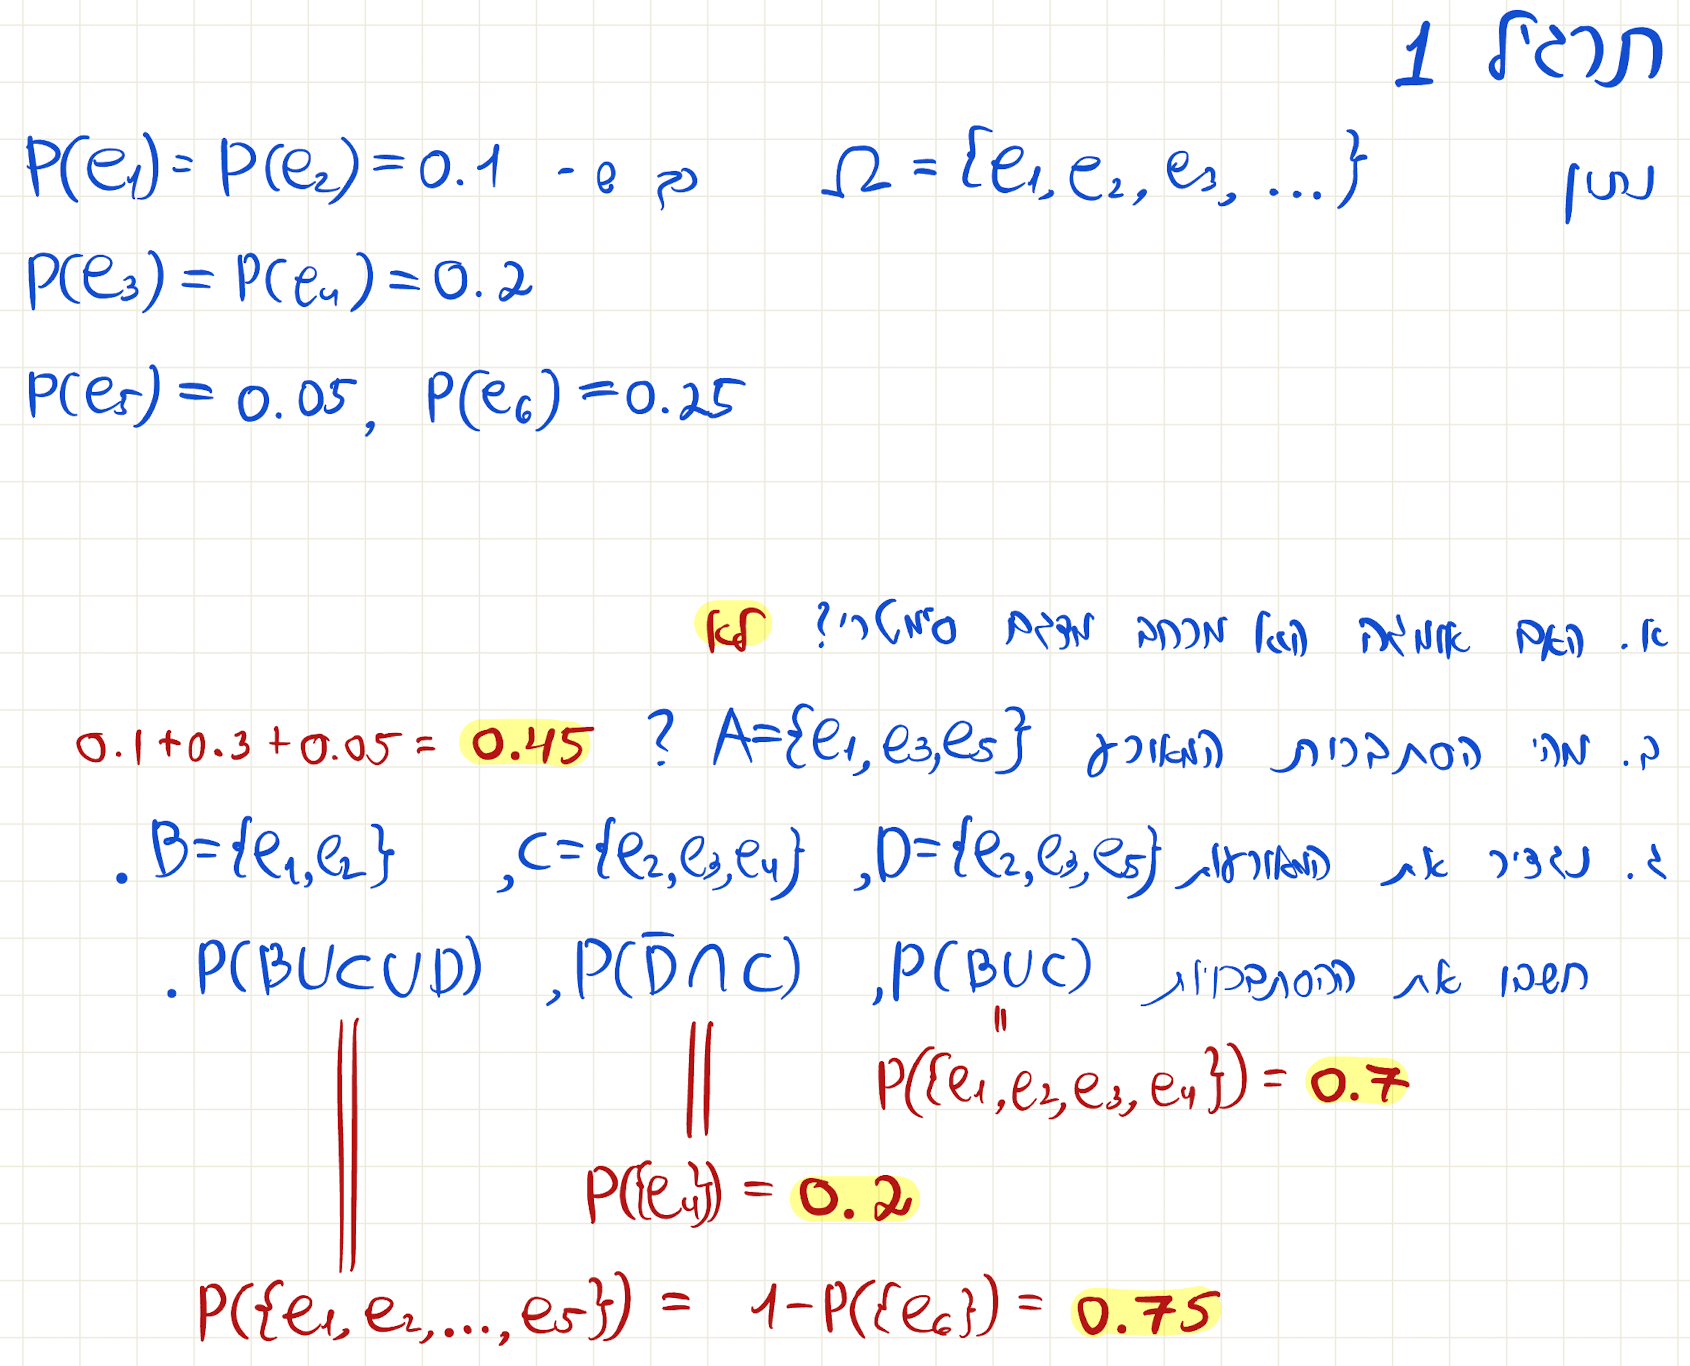 תרגיל 1
נתון Ω = {e₁, e₂, e₃, ...} כך ש- P(e₁) = P(e₂) = 0.1
P(e₃) = P(e₄) = 0.2
P(e₅) = 0.05, P(e₆) = 0.25
א. האם אומגה הוא מרחב מדגם סימטרי? לא
ב. מהי הסתברות המאורע A={e₁, e₃, e₅} ? 0.1+0.3+0.05 = 0.45
ג. נגדיר את המאורעות D={e₂, e₃, e₅}, C={e₂, e₃, e₄}, B={e₁, e₂}.
חשבו את ההסתברויות P(B∪C), P(D̅∩C), P(B∪C∪D).
P({e₁, e₂, e₃, e₄}) = 0.7
P({e₄}) = 0.2
P({e₁, e₂, ..., e₅}) = 1-P({e₆}) = 0.75